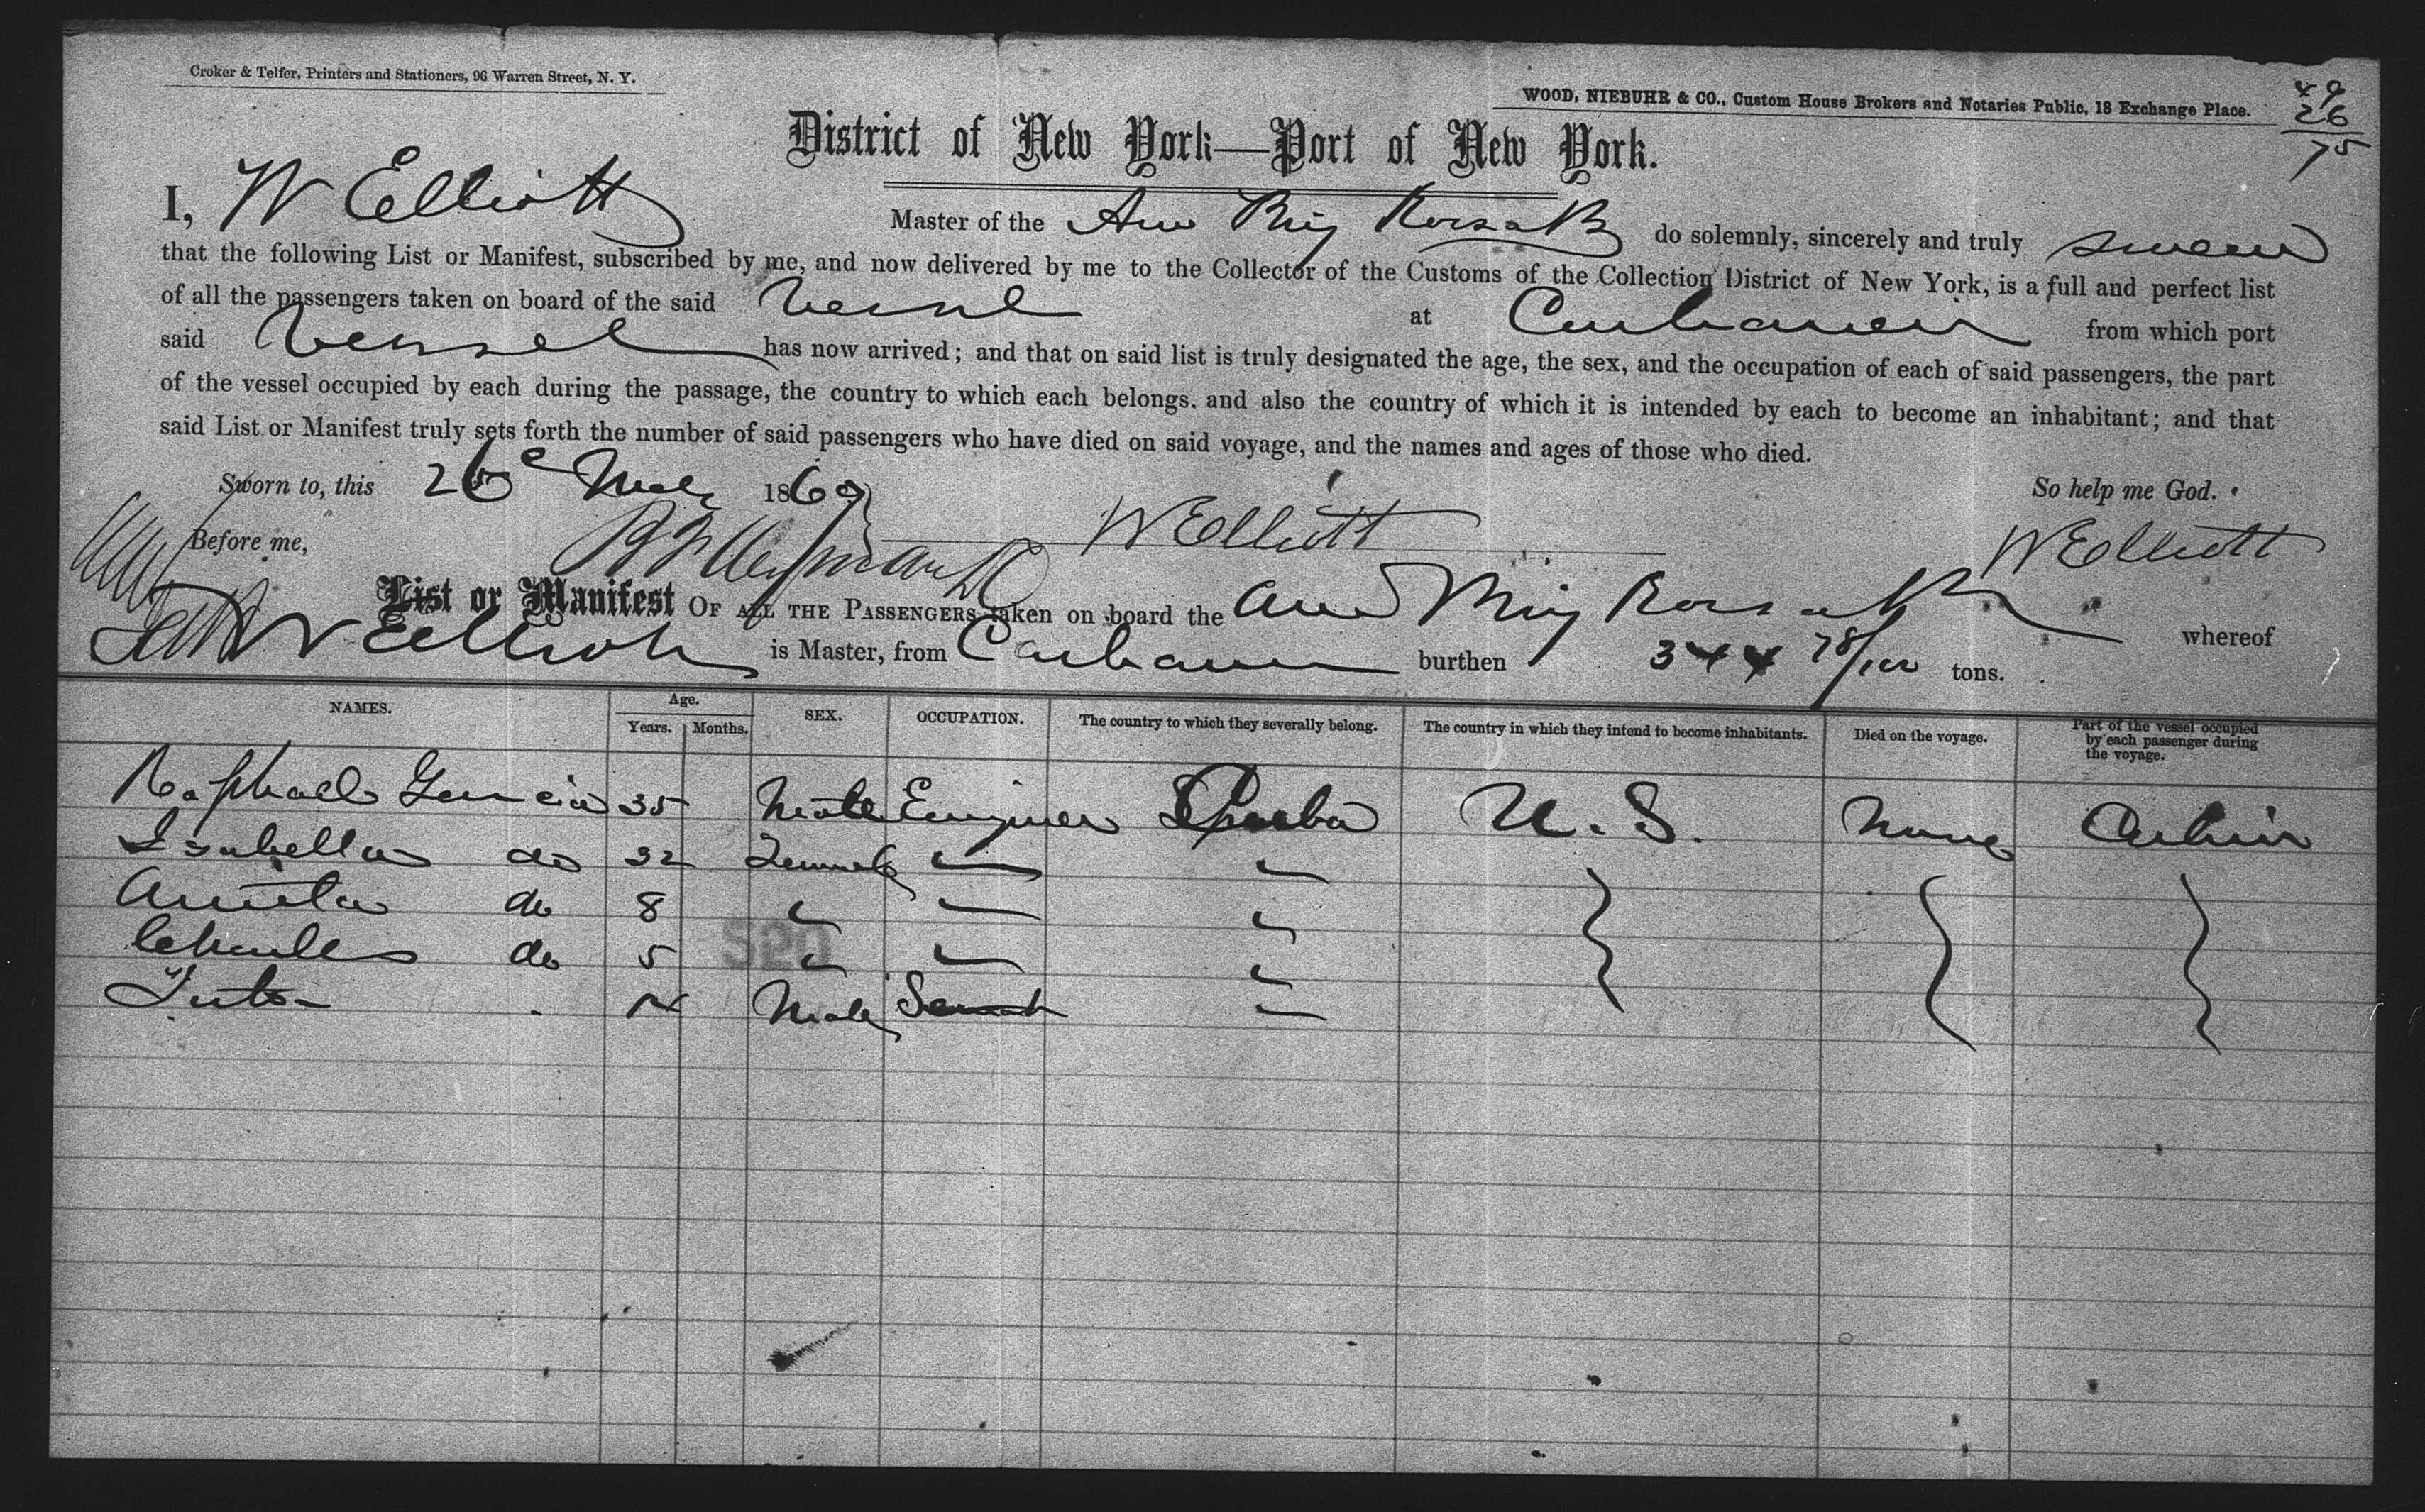 Croker & Telfer, Printers and Stationers, 96 Warren Street, N. Y.
WOOD, NIEBUHR & CO., Custom House Brokers and Notaries Public, 18 Exchange Place.
49
26
75
District of New York—Port of New York.
I, W Elliott Master of the Am Brig do solemnly, sincerely and truly swear
that the following List or Manifest, subscribed by me, and now delivered by me to the Collector of the Customs of the Collection District of New York, is a full and perfect list
of all the passengers taken on board of the said Vessel at from which port
said Vessel has now arrived; and that on said list is truly designated the age, the sex, and the occupation of each of said passengers, the part
of the vessel occupied by each during the passage, the country to which each belongs, and also the country of which it is intended by each to become an inhabitant; and that
said List or Manifest truly sets forth the number of said passengers who have died on said voyage, and the names and ages of those who died.
Sworn to, this 26 1869 So help me God.
Before me, W Elliott W Elliott
List or Manifest OF ALL THE PASSENGERS taken on board the Am Brig whereof
W Elliott is Master, from burthen 344 78/100 tons.
NAMES. Age. SEX. OCCUPATION. The country to which they severally belong. The country in which they intend to become inhabitants. Died on the voyage. Part of the vessel occupied by each passenger during the voyage.
Years. Months.
Raphael Garcia 35 Male Engineer Cuba U. S. None Cabin
Isabella do 32 Female
Anita do 8 "
Charles do 5 "
14 Male Servant
520